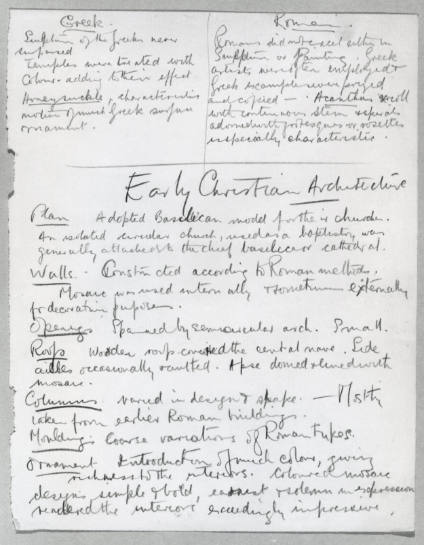 Greek.
Sculpture of the Greeks never
surpassed
Temples were treated with
Colour - adding to their effect
Honeysuckle, characteristic
motive of much Greek surface
ornament.
Roman.
Romans did not excel either in
Sculpture or Painting. Greek
artists were often employed &
Greek examples were prized
and copied — Acanthus scroll
with continuous stem & spirals
adorned with grotesques or rosettes
is specially characteristic.
Early Christian Architecture
Plan Adopted Basilican model for their church.
An isolated circular church, used as a baptistery was
generally attached to the chief basilica or cathedral.
Walls. Constructed according to Roman methods.
Mosaic was used internally & sometimes externally
for decorative purposes.
Openings Spanned by semicircular arch. Small.
Roofs Wooden roofs covered the central nave. Side
aisles occasionally vaulted. Apse domed & lined with
mosaic.
Columns varied in design & shape. — Mostly
taken from earlier Roman buildings.
Mouldings Coarse variations of Roman types.
Ornament Introduction of much colour, giving
richness to the interiors. Coloured mosaic
designs simple & bold, earnest & solemn in expression
rendered the interiors exceedingly impressive.